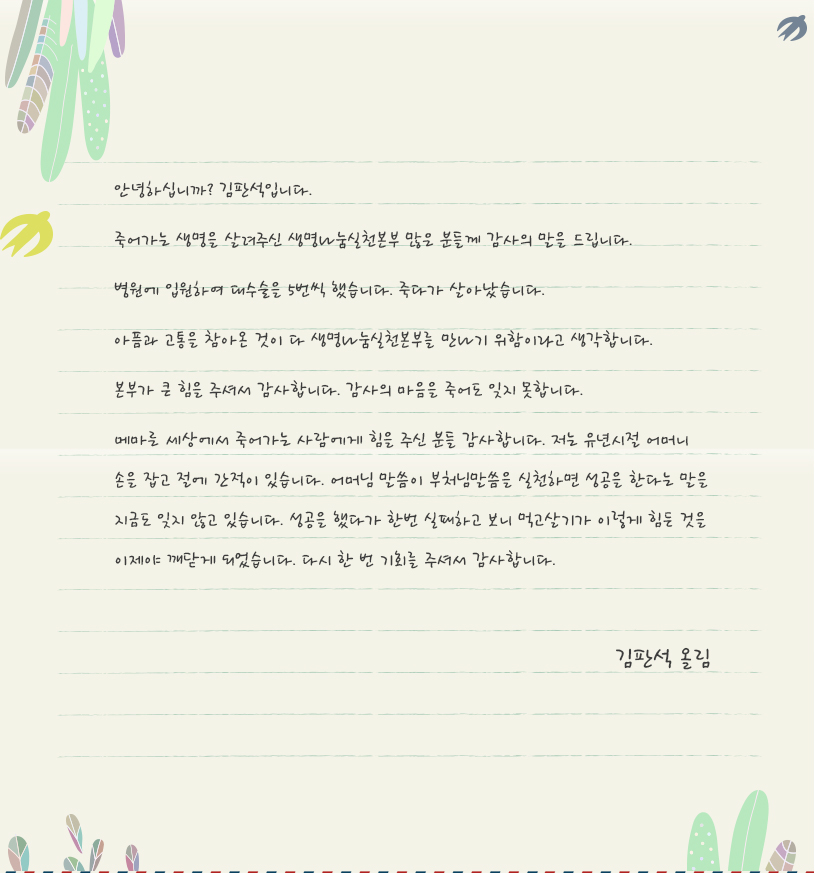 안녕하십니까? 김판석입니다.
죽어가는 생명을 살려주신 생명나눔실천본부 많은 분들께 감사의 말을 드립니다.
병원에 입원하여 대수술을 5번씩 했습니다. 죽다가 살아났습니다.
아픔과 고통을 참아온 것이 다 생명나눔실천본부를 만나기 위함이라고 생각합니다.
본부가 큰 힘을 주셔서 감사합니다. 감사의 마음을 죽어도 잊지 못합니다.
메마른 세상에서 죽어가는 사람에게 힘을 주신 분들 감사합니다. 저는 유년시절 어머니
손을 잡고 절에 간적이 있습니다. 어머님 말씀이 부처님말씀을 실천하면 성공을 한다는 말을
지금도 잊지 않고 있습니다. 성공을 했다가 한번 실패하고 보니 먹고살기가 이렇게 힘든 것을
이제야 깨닫게 되었습니다. 다시 한 번 기회를 주셔서 감사합니다.
김판석 올림